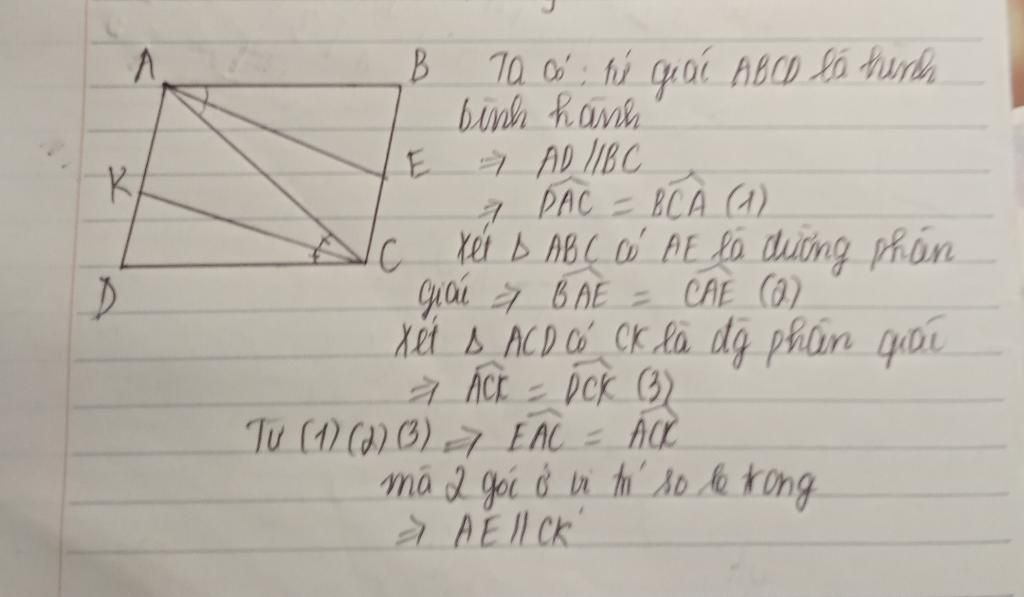 A
B
Ta có: tứ giác ABCD là hình
bình hành
E
⇒ AD//BC
K
⇒ DAC = BCA (1)
C
Xét Δ ABC có AE là đường phân
D
giác ⇒ BAE = CAE (2)
Xét Δ ACD có CK là đg phân giác
⇒ ACK = DCK (3)
Từ (1) (2) (3) ⇒ EAC = ACK
mà 2 góc ở vị trí so le trong
⇒ AE//CK